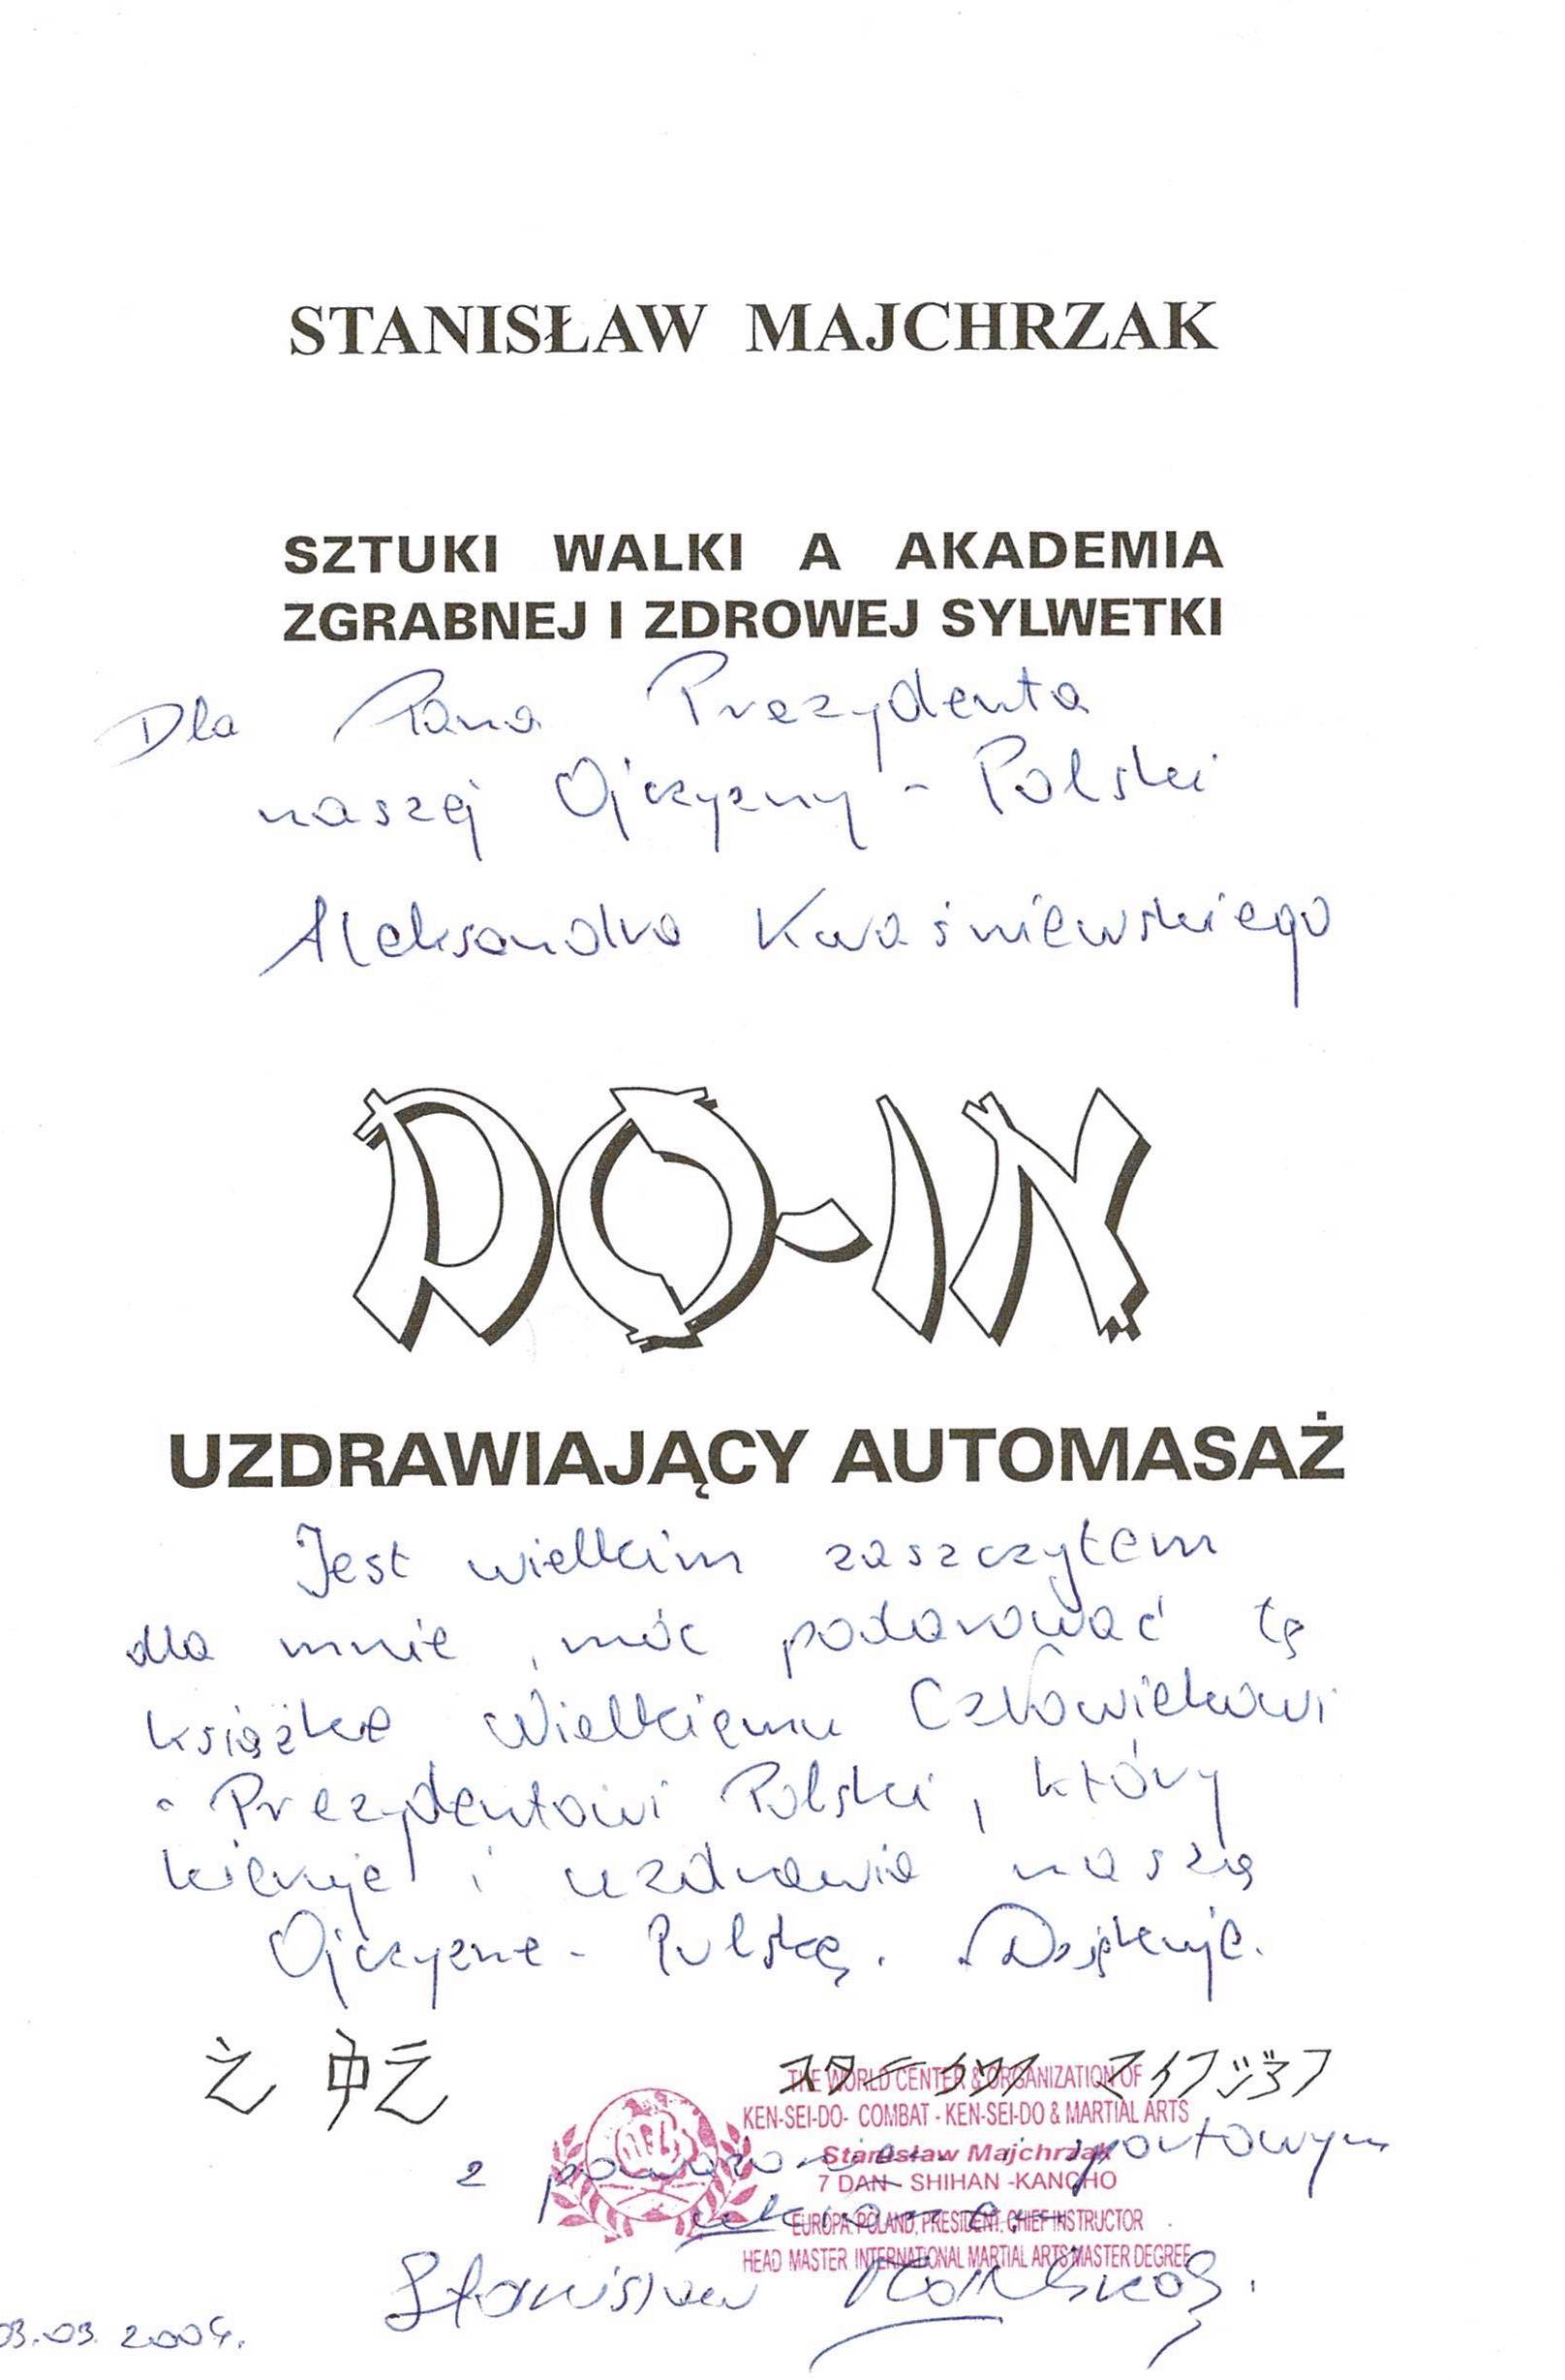 STANISŁAW MAJCHRZAK
SZTUKI WALKI A AKADEMIA
ZGRABNEJ I ZDROWEJ SYLWETKI
Dla Pana Prezydenta
naszej Ojczyzny - Polski
Aleksandra Kwaśniewskiego
DO-IN
UZDRAWIAJĄCY AUTOMASAŻ
Jest wielkim zaszczytem
dla mnie, móc podarować tę
książkę Wielkiemu Człowiekowi
- Prezydentowi Polski, który
kieruje i uzdrawia naszą
Ojczyznę - Polskę. Dziękuję.
スタニスワフ マイフジャフ
THE WORLD CENTER & ORGANIZATION OF
KEN-SEI-DO- COMBAT - KEN-SEI-DO & MARTIAL ARTS
Stanisław Majchrzak
7 DAN - SHIHAN -KANCHO
EUROPA. POLAND, PRESIDENT. CHIEF INSTRUCTOR
HEAD MASTER INTERNATIONAL MARTIAL ARTS MASTER DEGREE
z poważaniem i sportowym
ukłonem
Stanisław Majchrzak.
03.03.2004.